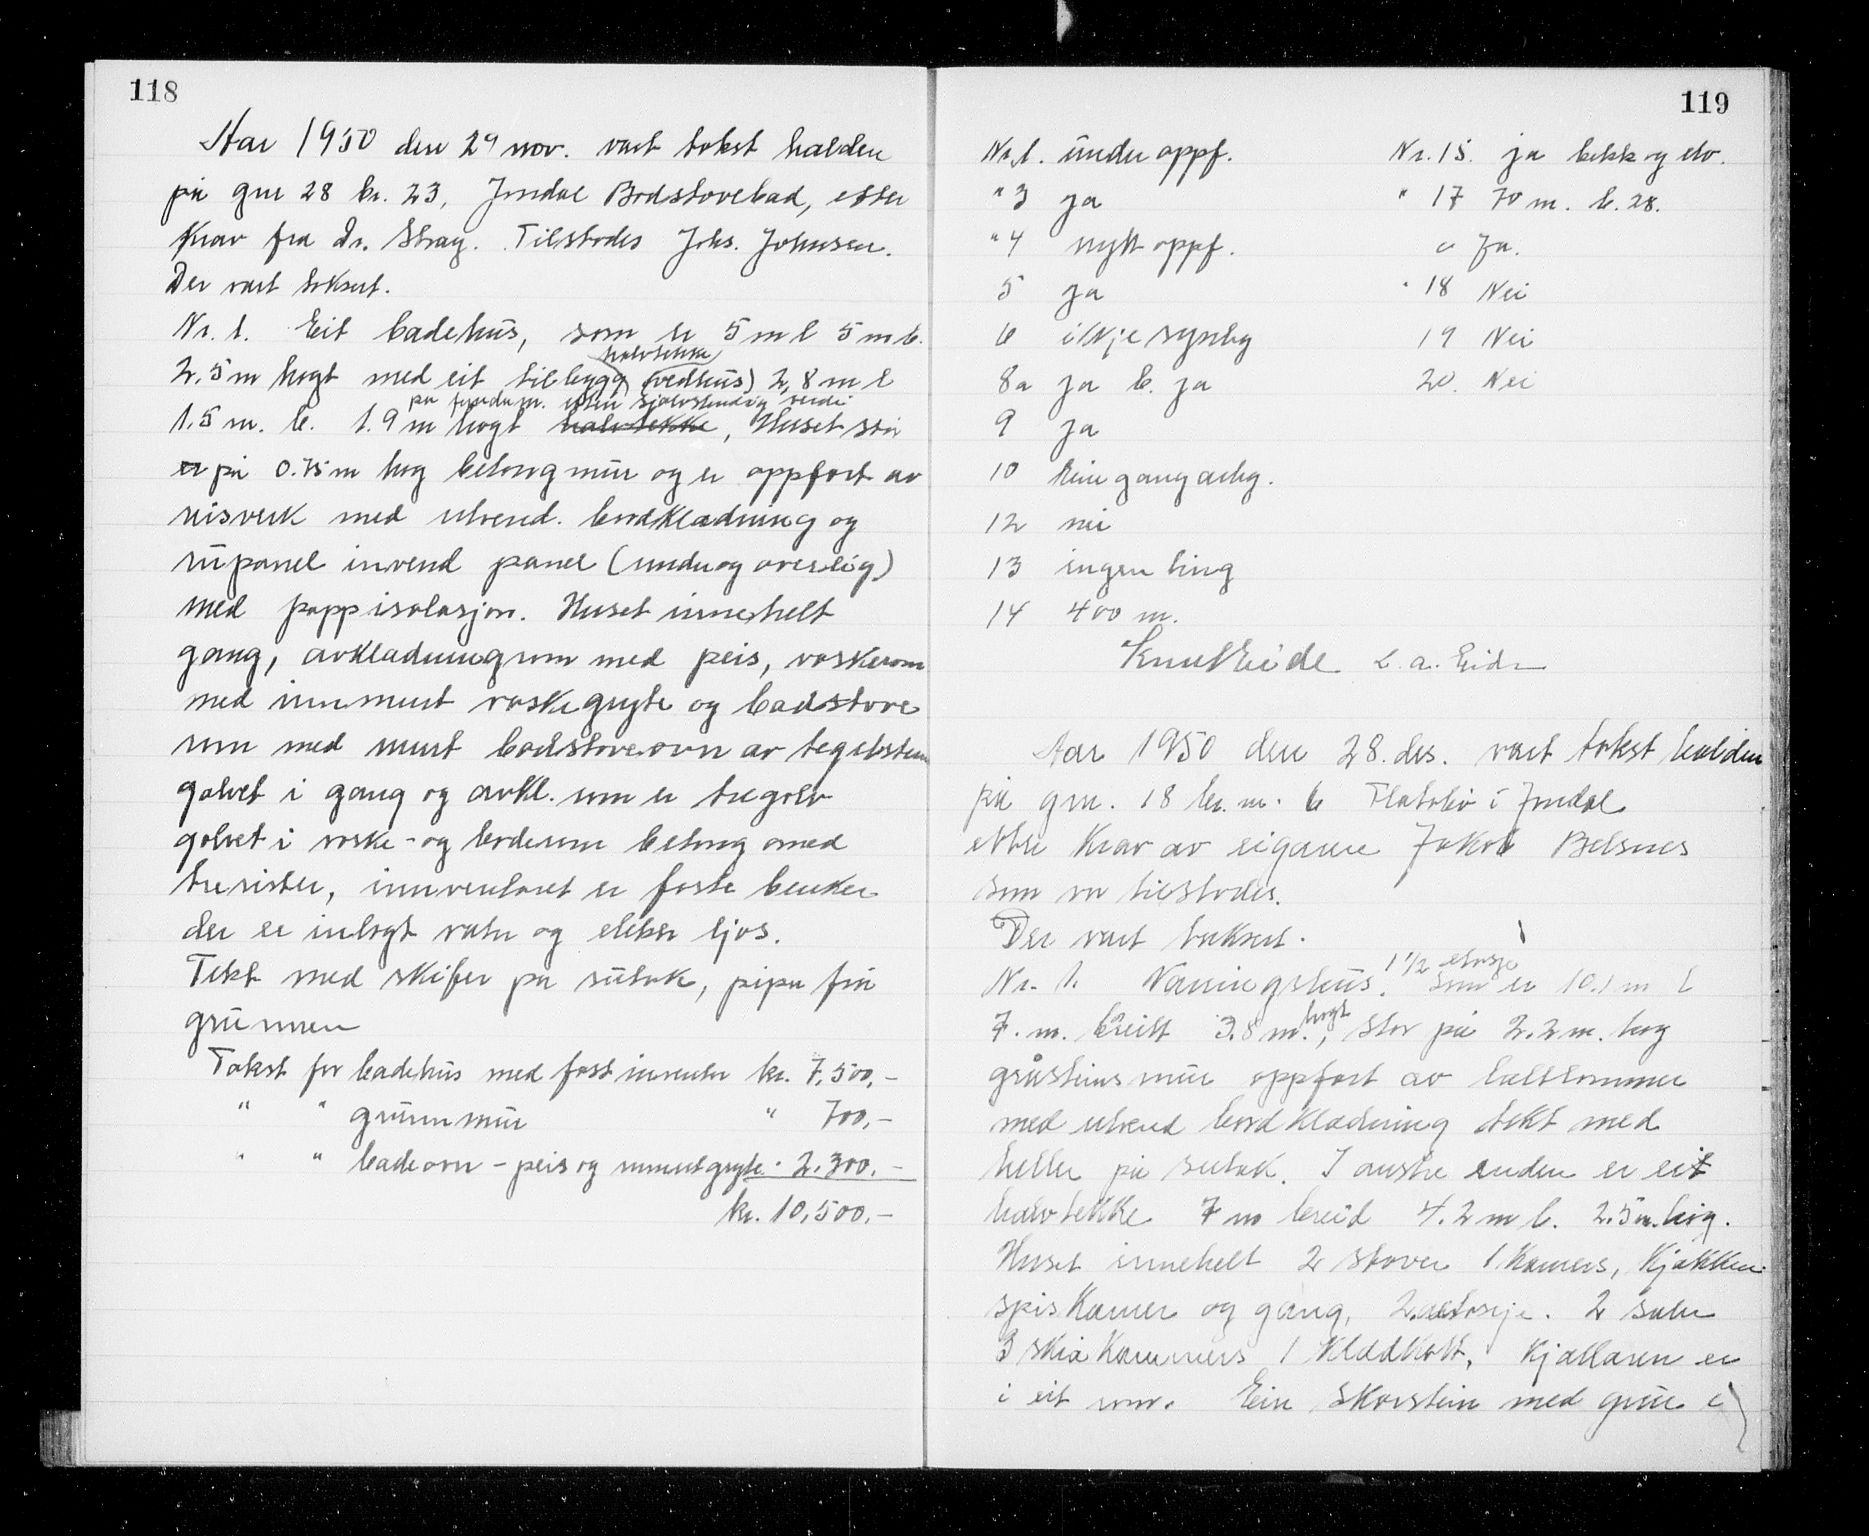 118
Aar 1950 den 29 nov. vart takst halden
på gnr 28 br. 23, Jondal Badstovebad, etter
krav fra Dr. Stray. Tilstades Johs. Johnsen.
Der vart taksert.
Nr. 1. Eit badehus, som er 5 m l 5 m b.
halvtekke
2.5 m høgt med eit tilbygg (vedhus) 2,8 m l
på fundam. uten sjølvstendig verdi
1.5 m. b. 1.9 m høgt halvtekke, Huset står
er på 0.75 m høg betongmur og er oppført av
reisverk med utvend. bordkledning og
rupanel invend panel (under og overlig)
med pappisolasjon. Huset innehelt
gang, avkledningsrom med peis, vaskerom
med innmurt vaskegryte og badstove
rom med murt badstoveovn av teglstein
golvet i gang og avkl. rom er tregolv
golvet i vaske- og baderom betong med
trerister, innventaret er faste benker
der er inlagt vatn og elektr ljos.
Tekt med skifer på sutak, pipa frå
grunnen
Takst for badehus med fast inventar kr. 7,500,-
" " grunnmur " 700,-
" " badeovn - peis og innmurt gryte " 2.300.-
kr. 10,500.-
119
Nr. 1. under oppf.
" 3 ja
" 4 nytt oppf.
5 ja
6 ikkje synleg
8a ja b. ja
9 ja
10 Ein gang årleg.
12 nei
13 ingen ting
14 400 m.
Nr. 15. ja bekk og elv.
" 17 70 m. b. 28.
c Ja.
" 18 Nei
19 Nei
20. Nei
Knut Eide L. A. Eide
Aar 1950 den 28. des. vart takst halden
på gnr. 18 br. nr. 6 Flatabø i Jondal
ettre krav av eigaren Jakob Belsnes
som var tilstades.
Der vart taksert.
1 1/2 etasje
Nr. 1. Vaaningshus. som er 10.1 m l
høgt
7. m. breitt 3.8 m., står på 2.2 m. høg
gråsteinsmur oppført av heltømmer
med utvend bordkledning tekt med
heller på sutak. I austre enden er eit
halvtekke 7 m breid 4.2 m l. 2.5 m. høg.
Huset innehelt 2 stover 1 kamers, kjøkken
spiskamer og gang, 2. etasje. 2 salar
3 skråkammers 1 kledkott, Kjellaren er
i eit rom. Ein skorstein med grue i